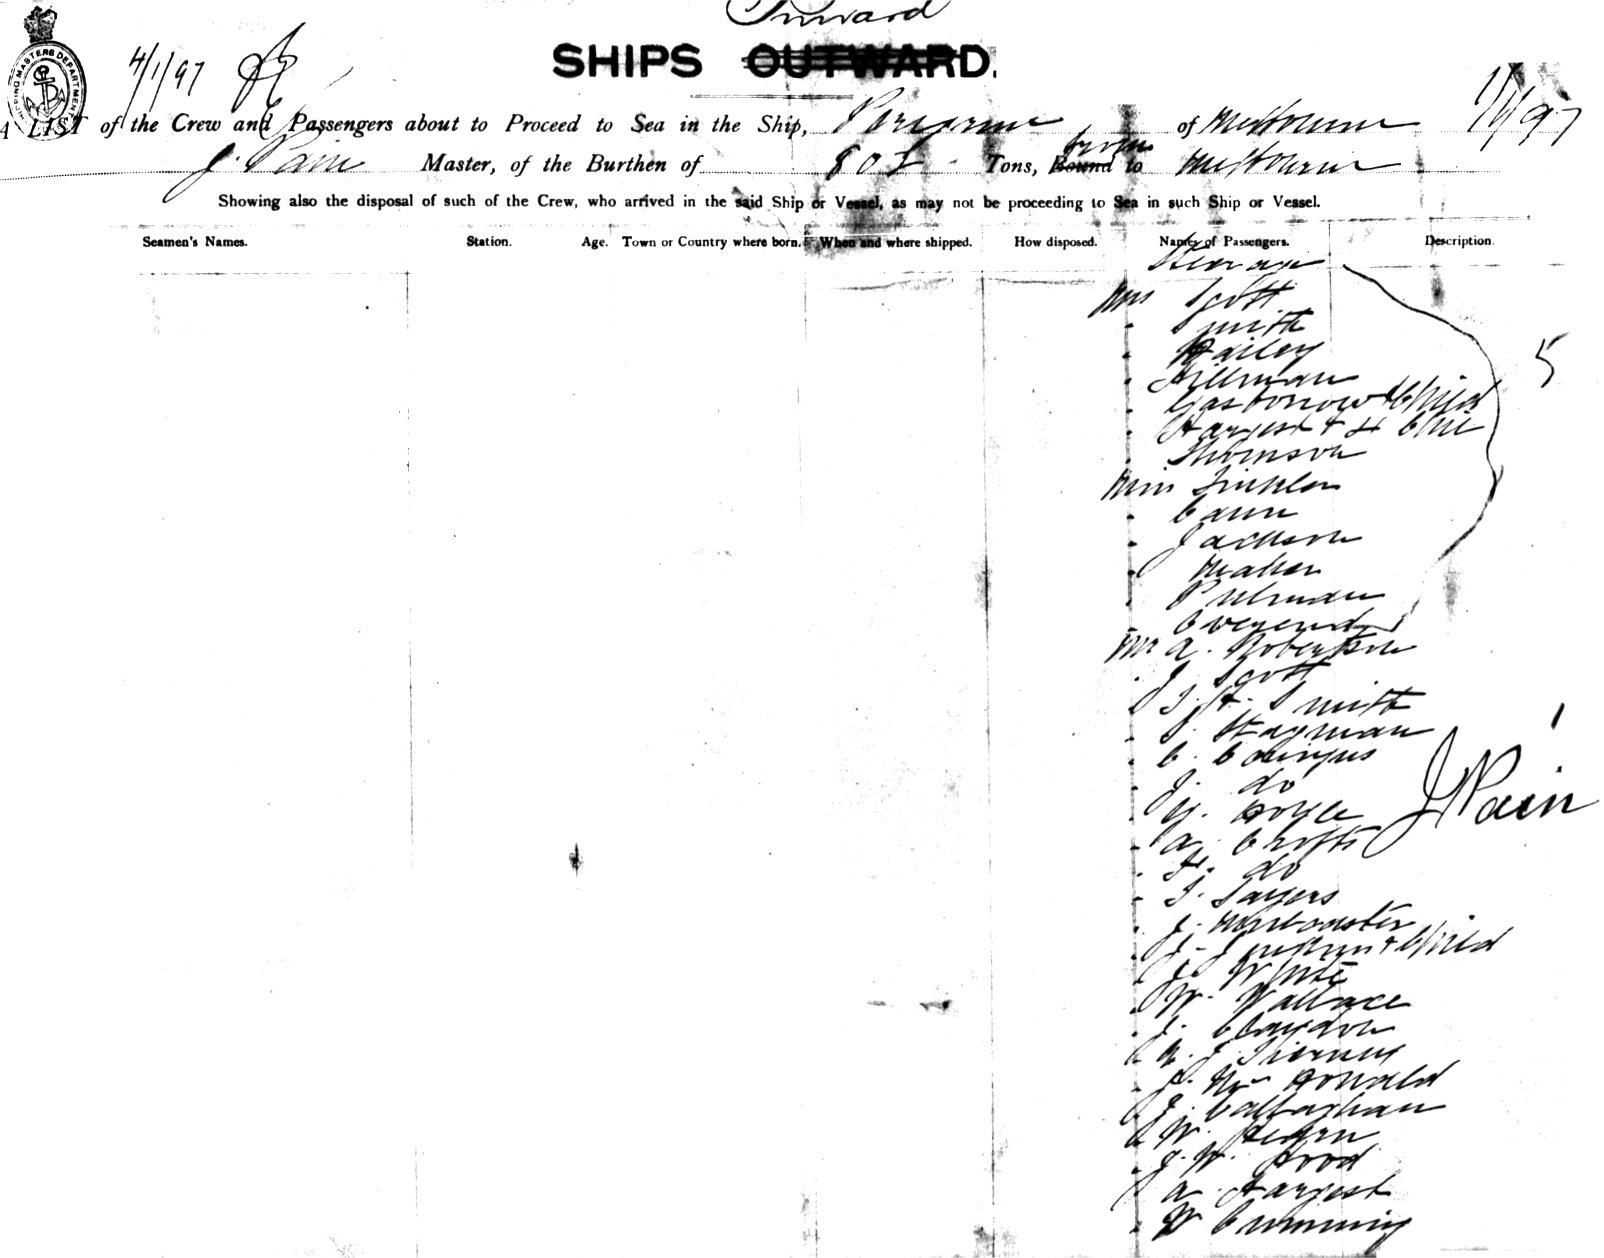 Inward
SHIPS OUTWARD.
SHIPPING MASTERS DEPARTMENT
4/1/97
1/1/97
A LIST of the Crew and Passengers about to Proceed to Sea in the Ship, Peregrine of Melbourne
J. Pain Master, of the Burthen of 801 Tons, Bound from to Melbourne
Showing also the disposal of such of the Crew, who arrived in the said Ship or Vessel, as may not be proceeding to Sea in such Ship or Vessel.
Seamen's Names. Station. Age. Town or Country where born. When and where shipped. How disposed. Names of Passengers. Description.
Steerage
Mrs Scott
" Smith
" Bailey
" Hillman
" & Child
" Hargest & 4 Chil
" Thomson
Miss Tinkler
" Cann
" Jackson
" Maher
" Pulman
"
Mr A. Robertson
" J. Scott
" S. H. Smith
" S. Hayman
" C.
" J. do
" Y. Doyle
" A. Crofts
" H. do
" S. Sayers
" J.
" J. & Child
" J. White
" W. Wallace
" J. Claydon
" J. Tierney
" J. Mc Donald
" J. Callaghan
" W. Hearn
" J. W. Hood
" A. Hargest
" W Cumming
5
1
J Pain